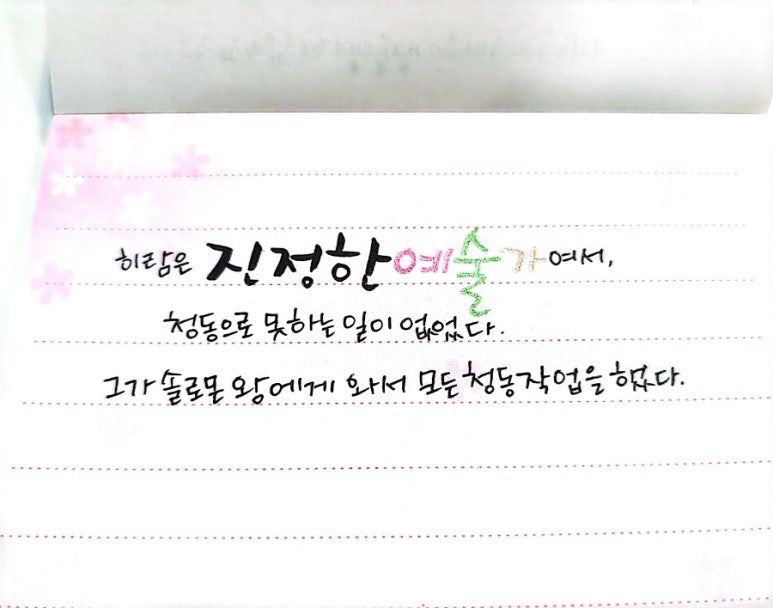 히람은 진정한 예술가여서,
청동으로 못하는 일이 없었다.
그가 솔로몬 왕에게 와서 모든 청동작업을 했다.